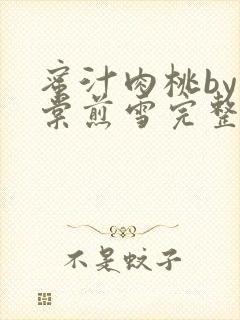 蜜汁肉桃by
棠煎雪完整
不是蚊子